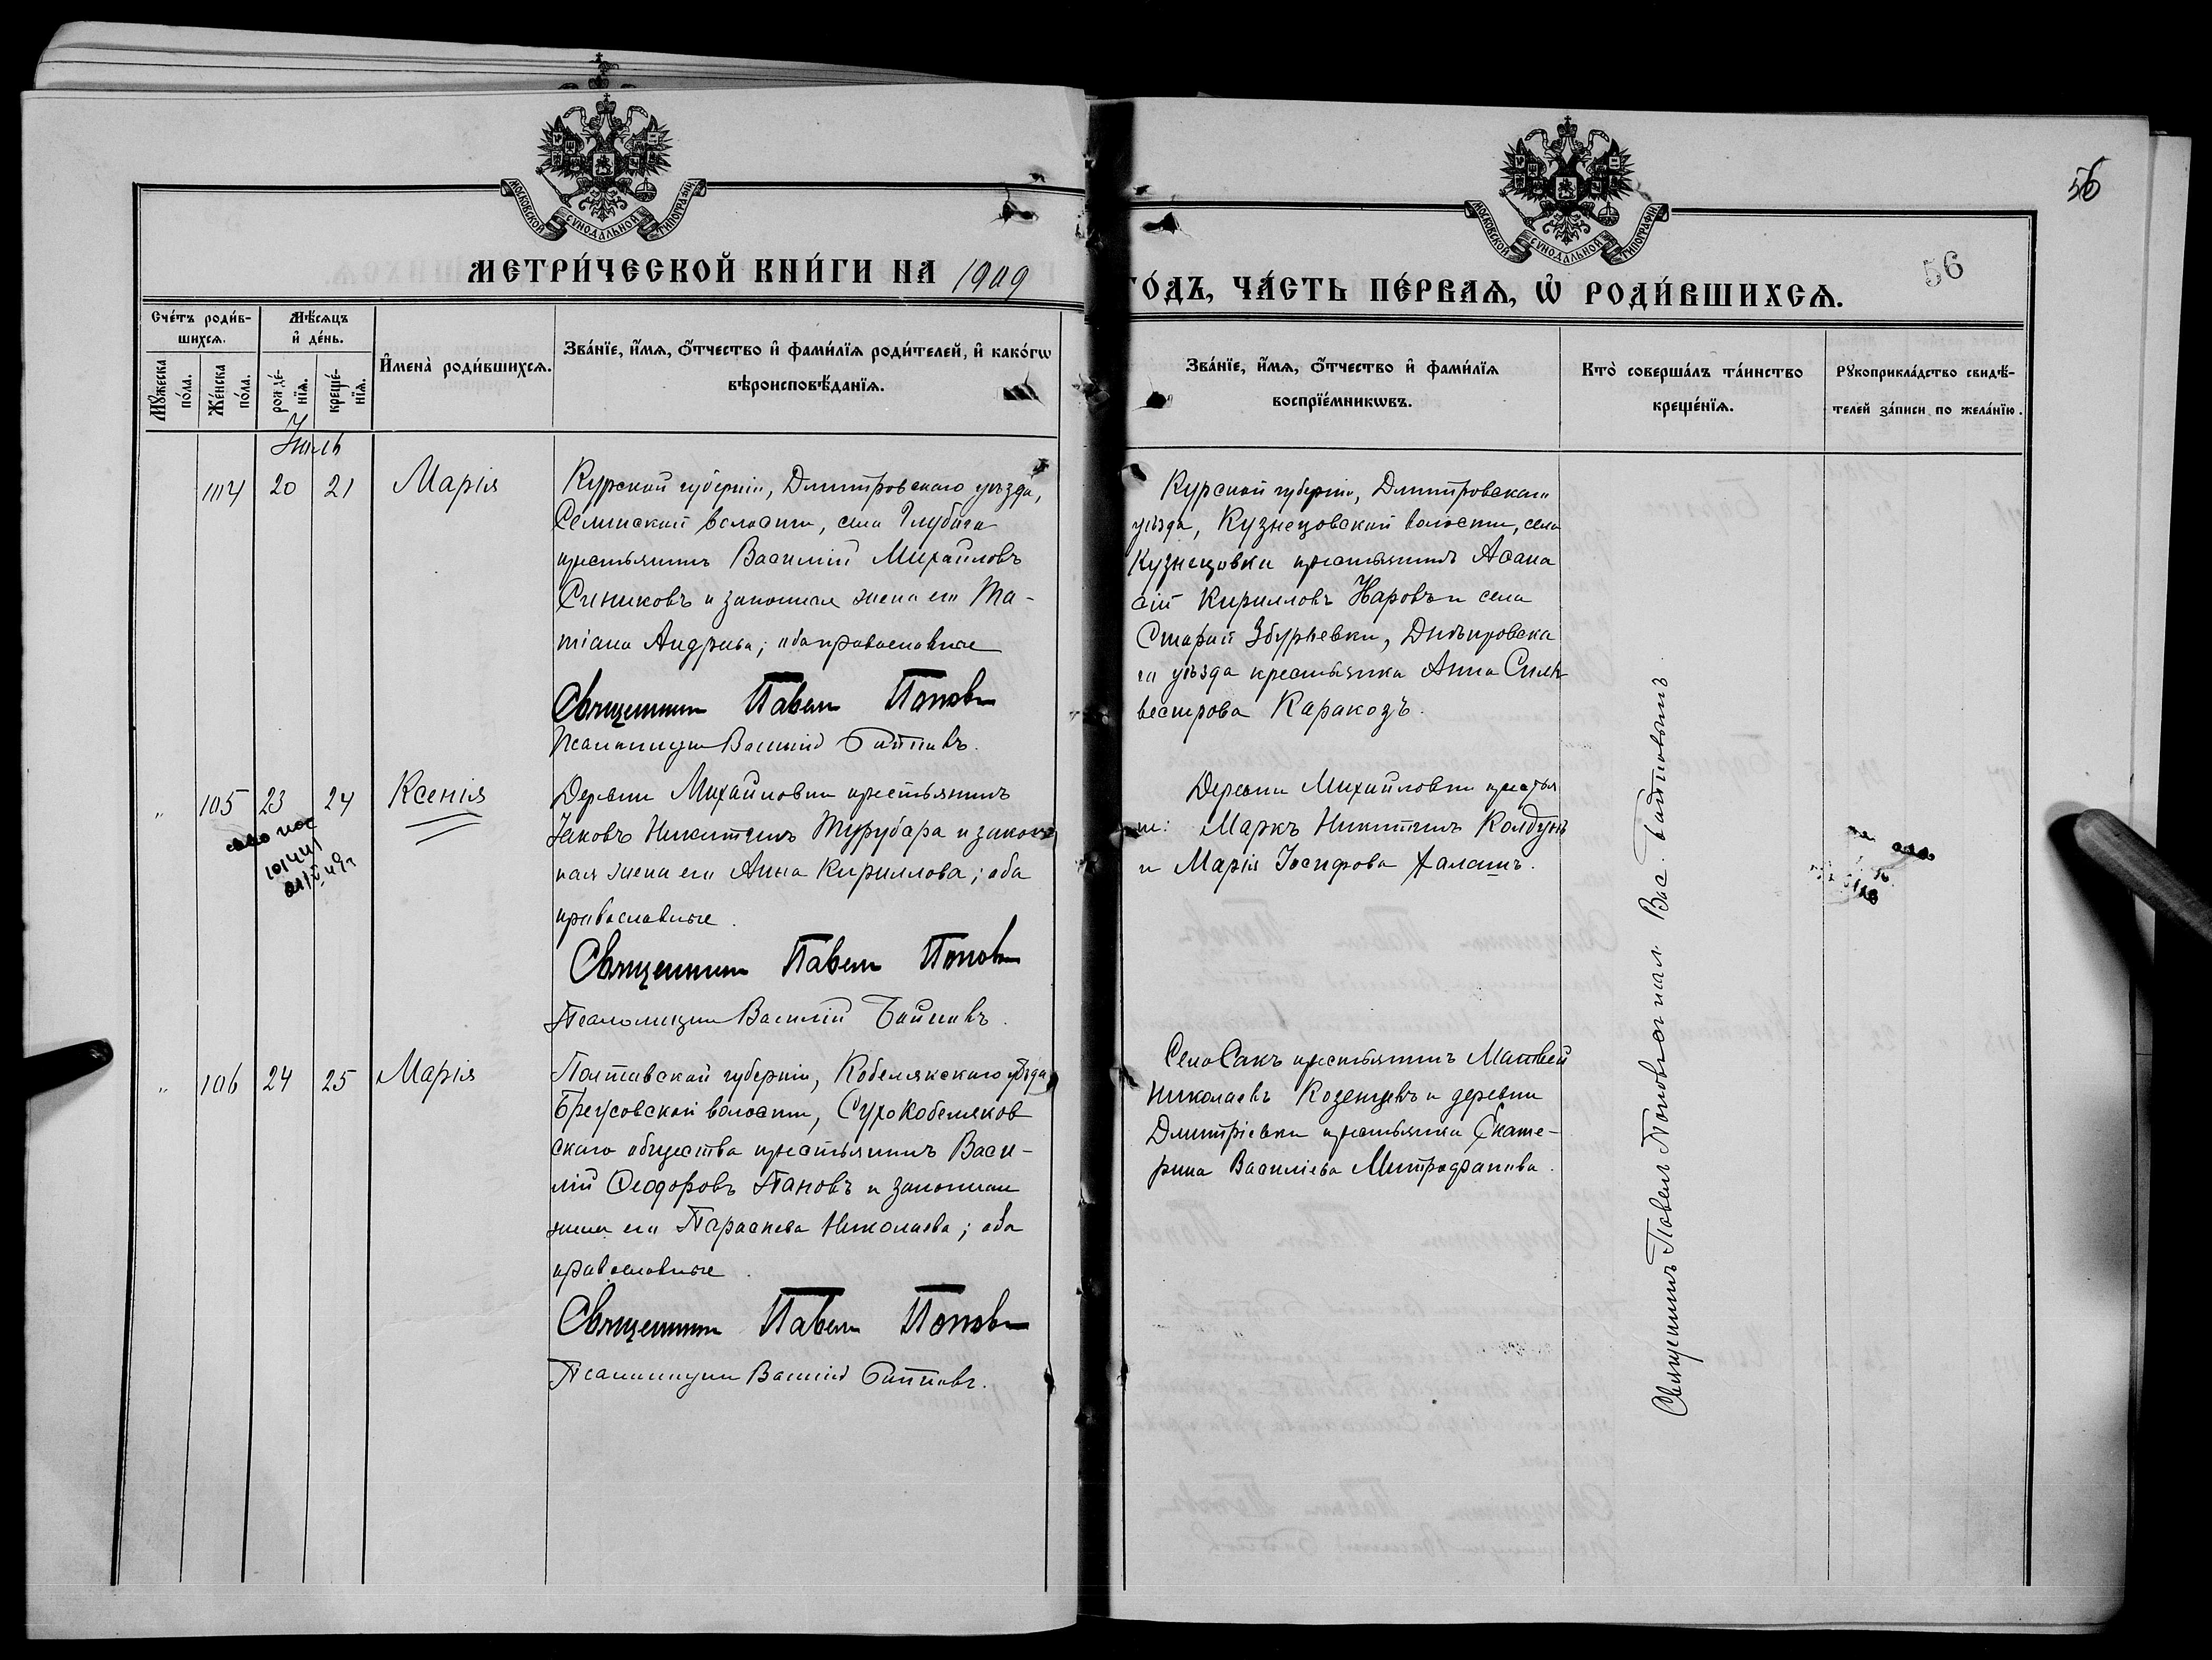 56
МОСКОВСКОЙ СѴНОДАЛЬНОЙ ТИПОГРАФІИ
МОСКОВСКОЙ СѴНОДАЛЬНОЙ ТИПОГРАФІИ
МЕТРИ́ЧЕСКОЙ КНИ́ГИ НА 1909
ГО́ДЪ, ЧА́СТЬ ПЕ́РВАѦ, Ѡ РОДИ́ВШИХСѦ.
56
Сче́тъ роди́в-
шихсѧ.
Мꙋ́жеска
по́ла.
Же́нска
по́ла.
Мѣ́сѧцъ
и҆ де́нь.
рожде́-
нїѧ.
креще́-
нїѧ.
И҆мена̀ роди́вшихсѧ.
Зва́нїе, и҆́мѧ, ѻ҆́тчество и҆ фами́лїѧ роди́телей, и҆ како́гѡ
вѣроисповѣ́данїѧ.
Зва́нїе, и҆́мѧ, ѻ҆́тчество и҆ фами́лїѧ
воспрїе́мникѡвъ.
Кто̀ соверша́лъ та́инство
креще́нїѧ.
Рꙋкоприкла́дство свидѣ́-
телей за́писи по жела́нїю.
Іюль
104 20 21 Марія
Курской губерніи, Дмитровскаго уѣзда,
волости, села
крестьянинъ Василій Михайловъ
Синиковъ и законная жена его Та-
тіана Андреева; оба православные
Священникъ Павелъ Поповъ
Псаломщикъ Василій
Курской губерніи, Дмитровскаго
уѣзда, Кузнецовской волости, села
Кузнецовки крестьянинъ Аѳана
сій Кирилловъ Наровъ и села
Старой Збурьевки, Днѣпровска
го уѣзда крестьянка Анна Силь
вестрова Каракозъ.
" 105 23 24 Ксенія
Деревни Михайловки крестьянинъ
Іаковъ Никитинъ Турубара и закон
ная жена его Анна Кириллова; оба
православные.
Священникъ Павелъ Поповъ
Псаломщикъ Василій
Деревни Михайловки крестья
Маркъ Никитинъ Колдунъ
и Марія Іосифова Халашъ.
" 106 24 25 Марія
Полтавской губерніи, Кобелякскаго уѣзда
Бреусовской волости, Сухокобеляков
скаго общества крестьянинъ Васи-
лій Ѳеодоровъ Пановъ и законная
жена его Параскева Николаева; оба
православные.
Священникъ Павелъ Поповъ
Псаломщикъ Василій
Село Сакъ крестьянинъ Матвей
Николаевъ Козенцевъ и деревни
Дмитріевки крестьянка Екате-
рина Василіева Митрофанова.
Священникъ Павелъ Поповъ Вас.